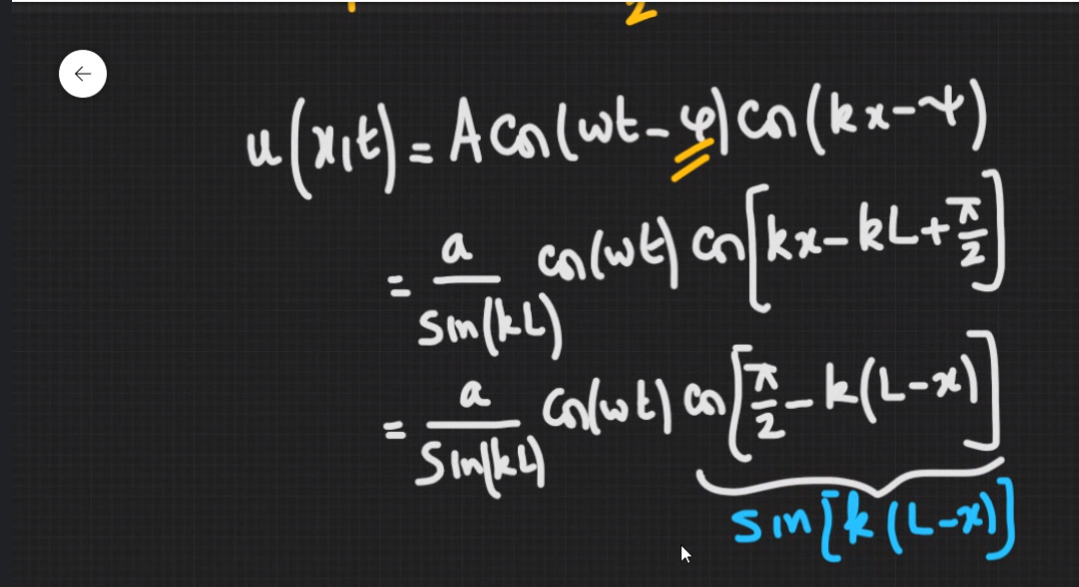 u(x,t) = A cos(ωt - φ) cos(kx - ψ)
= a/sin(kL) cos(ωt) cos[kx - kL + π/2]
= a/sin(kL) cos(ωt) cos[π/2 - k(L-x)]
sin[k(L-x)]